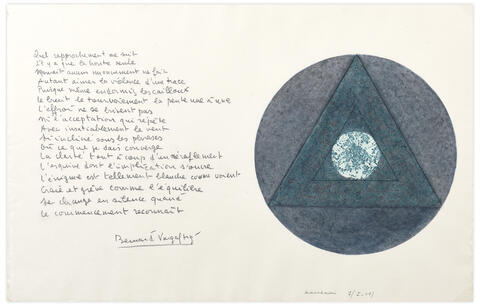 Quel rapprochement ne suit
S'il y a que la honte seule
aucun mouvement ne fait
Autant aimer la violence d'une trace
Puisque même endormis les cailloux
Le bruit le tournoiement la pente mise à nue
L'effroi ne se brisent pas
Ni l'acceptation qui répète
Avec inlassablement le vent
Si incliné sous les phrases
Où ce que je sais converge
La clarté tout à coup d'un
dont l'implication s'ouvre
L'énigme est tellement blanche comme voient
Craie et grève comme l'équilibre
Se change en silence quand
Le commencement reconnaît
Bernard Vargaftig